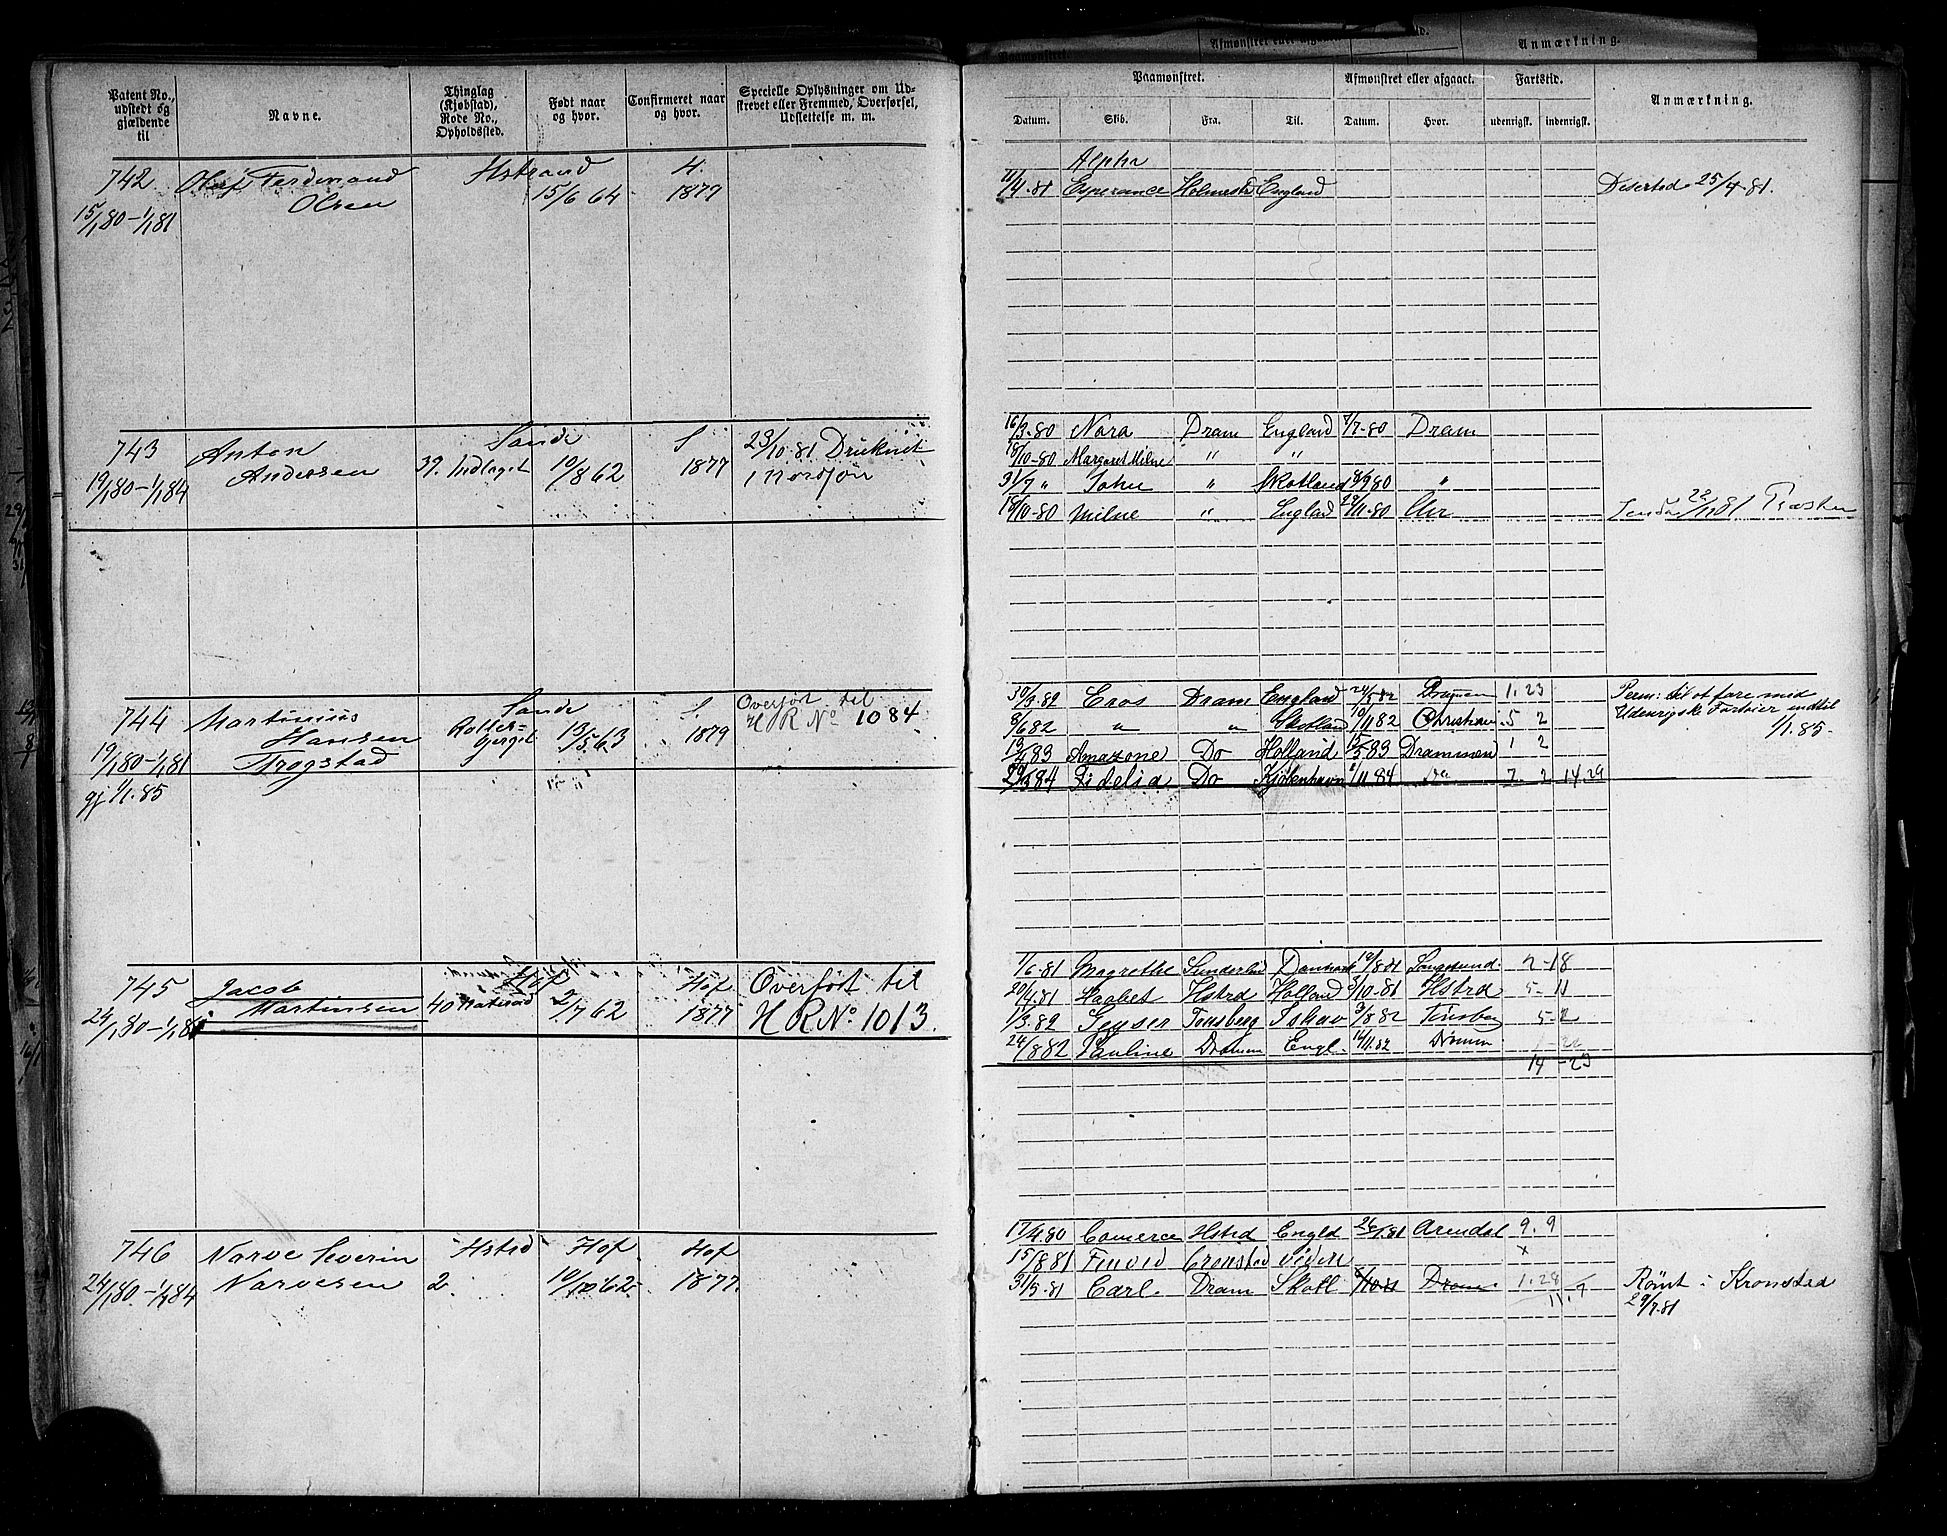 Patent No., udstedt og gjældende til
Navne.
Thinglag (Kjøbstad), Rode No., Opholdssted.
Født naar og hvor.
Confirmeret naar og hvor.
Specielle Oplysninger om Udskrevet eller Fremmed, Overførsel, Udslettelse m. m.
Paamønstret.
Afmønstret eller afgaaet.
Fartstid.
Anmærkning.
Datum.
Skib.
Fra.
Til.
Datum.
Hvor.
udenrigsk.
indenrigsk.
742
Olaf Ferdinand
Olsen
Hstrand
15/6 64
H.
1877
15/1 80-1/1 81
Alpha
11/4-81 Esperance England
Deserted 25/4-81.
743
Anton
Andersen
Sande
39. Indlaget 19/8 62
S
1877
23/10-81 Druknet
i Nordsjøn
19/1 80-1/1 84
16/3-80 Nora Dram England 4/7-80 Dram
18/10-80 Margaret Milne " "
31/7 " " Skotland "
19/10-80 Milne " England 29/11-80
22/11 81
744
Martinius
Hansen
Trogstad
Sande
13/5 63
S.
1879
Overført til
H R No 1084
19/1 80-1/1 81
gj 1/1.85
30/3-82 Eros Dram England 1. 23
8/6 82 " " Skotland 19/11 82 5 2
Amazone Do Holland Drammen 1 2
Fidelia Do Kjøbenhavn 7. 2 14.29
Perm: til at fare med
Udenrigske Fartøier indtil
1/1.85-
745
Jacob
Martinsen
Hof
40 2/7 62
Hof
1877
Overført til
H R No. 1013.
24/1 80-1/1 81
1/6-81 Magrethe Danmark 2-18
20/4.81 Haabet Hstrd Holland 3/10-81 Hstrd 5-11
1/3.82 Geyser Tonsberg 3/8 82 5-2
24/8 82 Pauline Engl. 14/11.82
14-23
746
Narve Severin
Narvesen
Hstrd
2.
Hof
19/10 62
Hof
1877.
24/1 80-1/1 84
17/4.80 Comerce Hstrd Engld 26/1.81 Arendal 9. 9
15/8 81 Cronstad videre x
31/5.81 Carl. Dram Skotl Dram 1.28
11. 7
Rømt i Kronstad
29/7.81